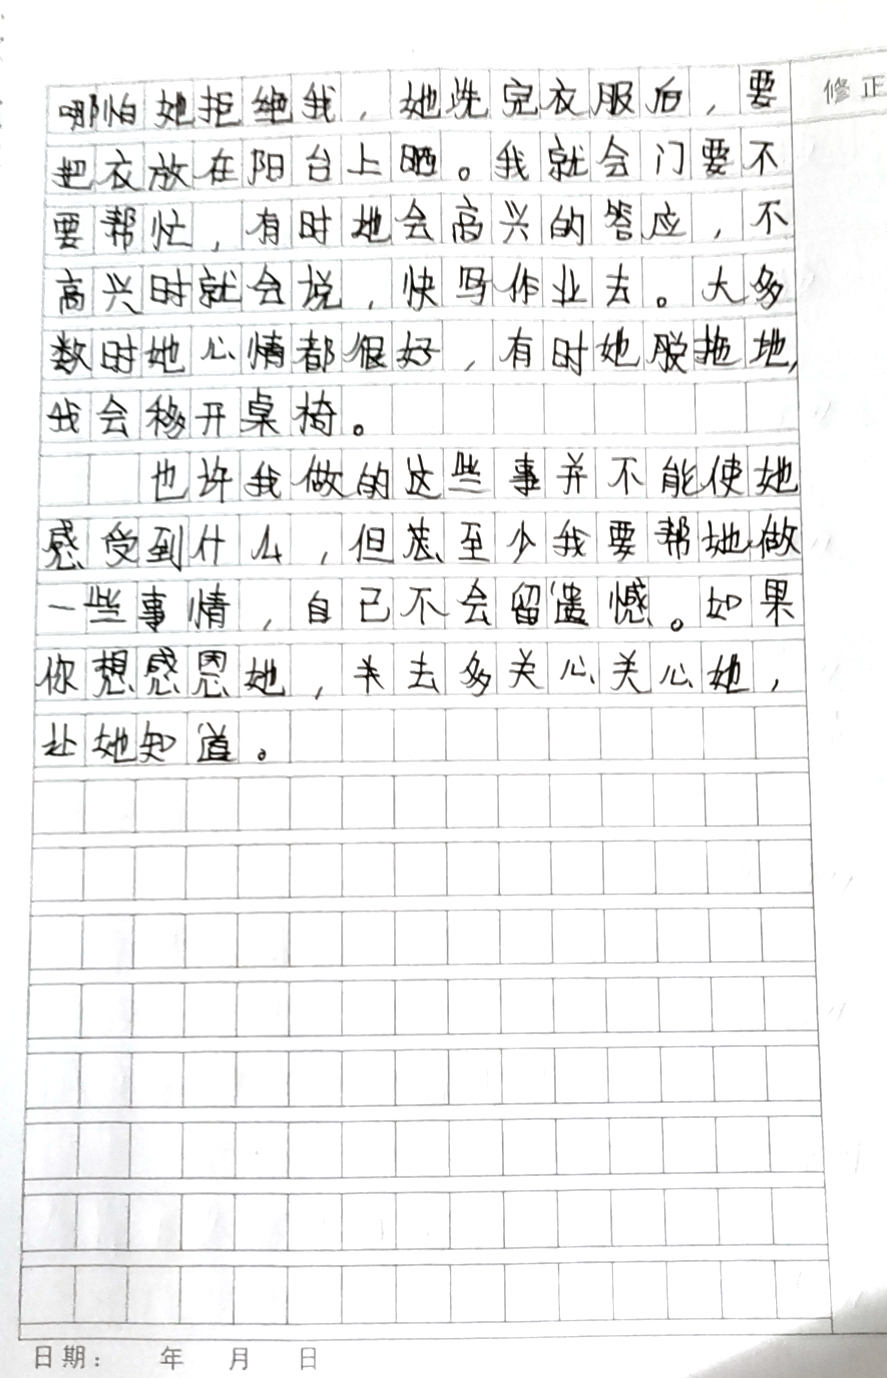 哪怕她拒绝我，她洗完衣服后，要
修正
把衣放在阳台上晒。我就会门要不
要帮忙，有时地会高兴的答应，不
高兴时就会说，快写作业去。大多
数时她心情都很好，有时她脱拖地，
我会移开桌椅。
也许我做的这些事并不能使她
感受到什么，但至少我要帮地做
一些事情，自己不会留遗憾。如果
你想感恩她，去多关心关心她，
让她知道。
日期： 年 月 日